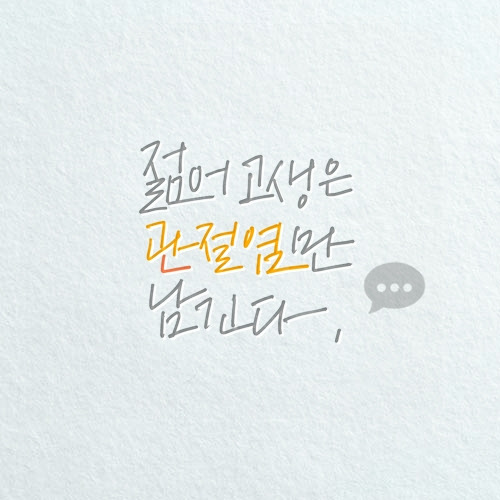 젊어 고생은
관절염만
남긴다,